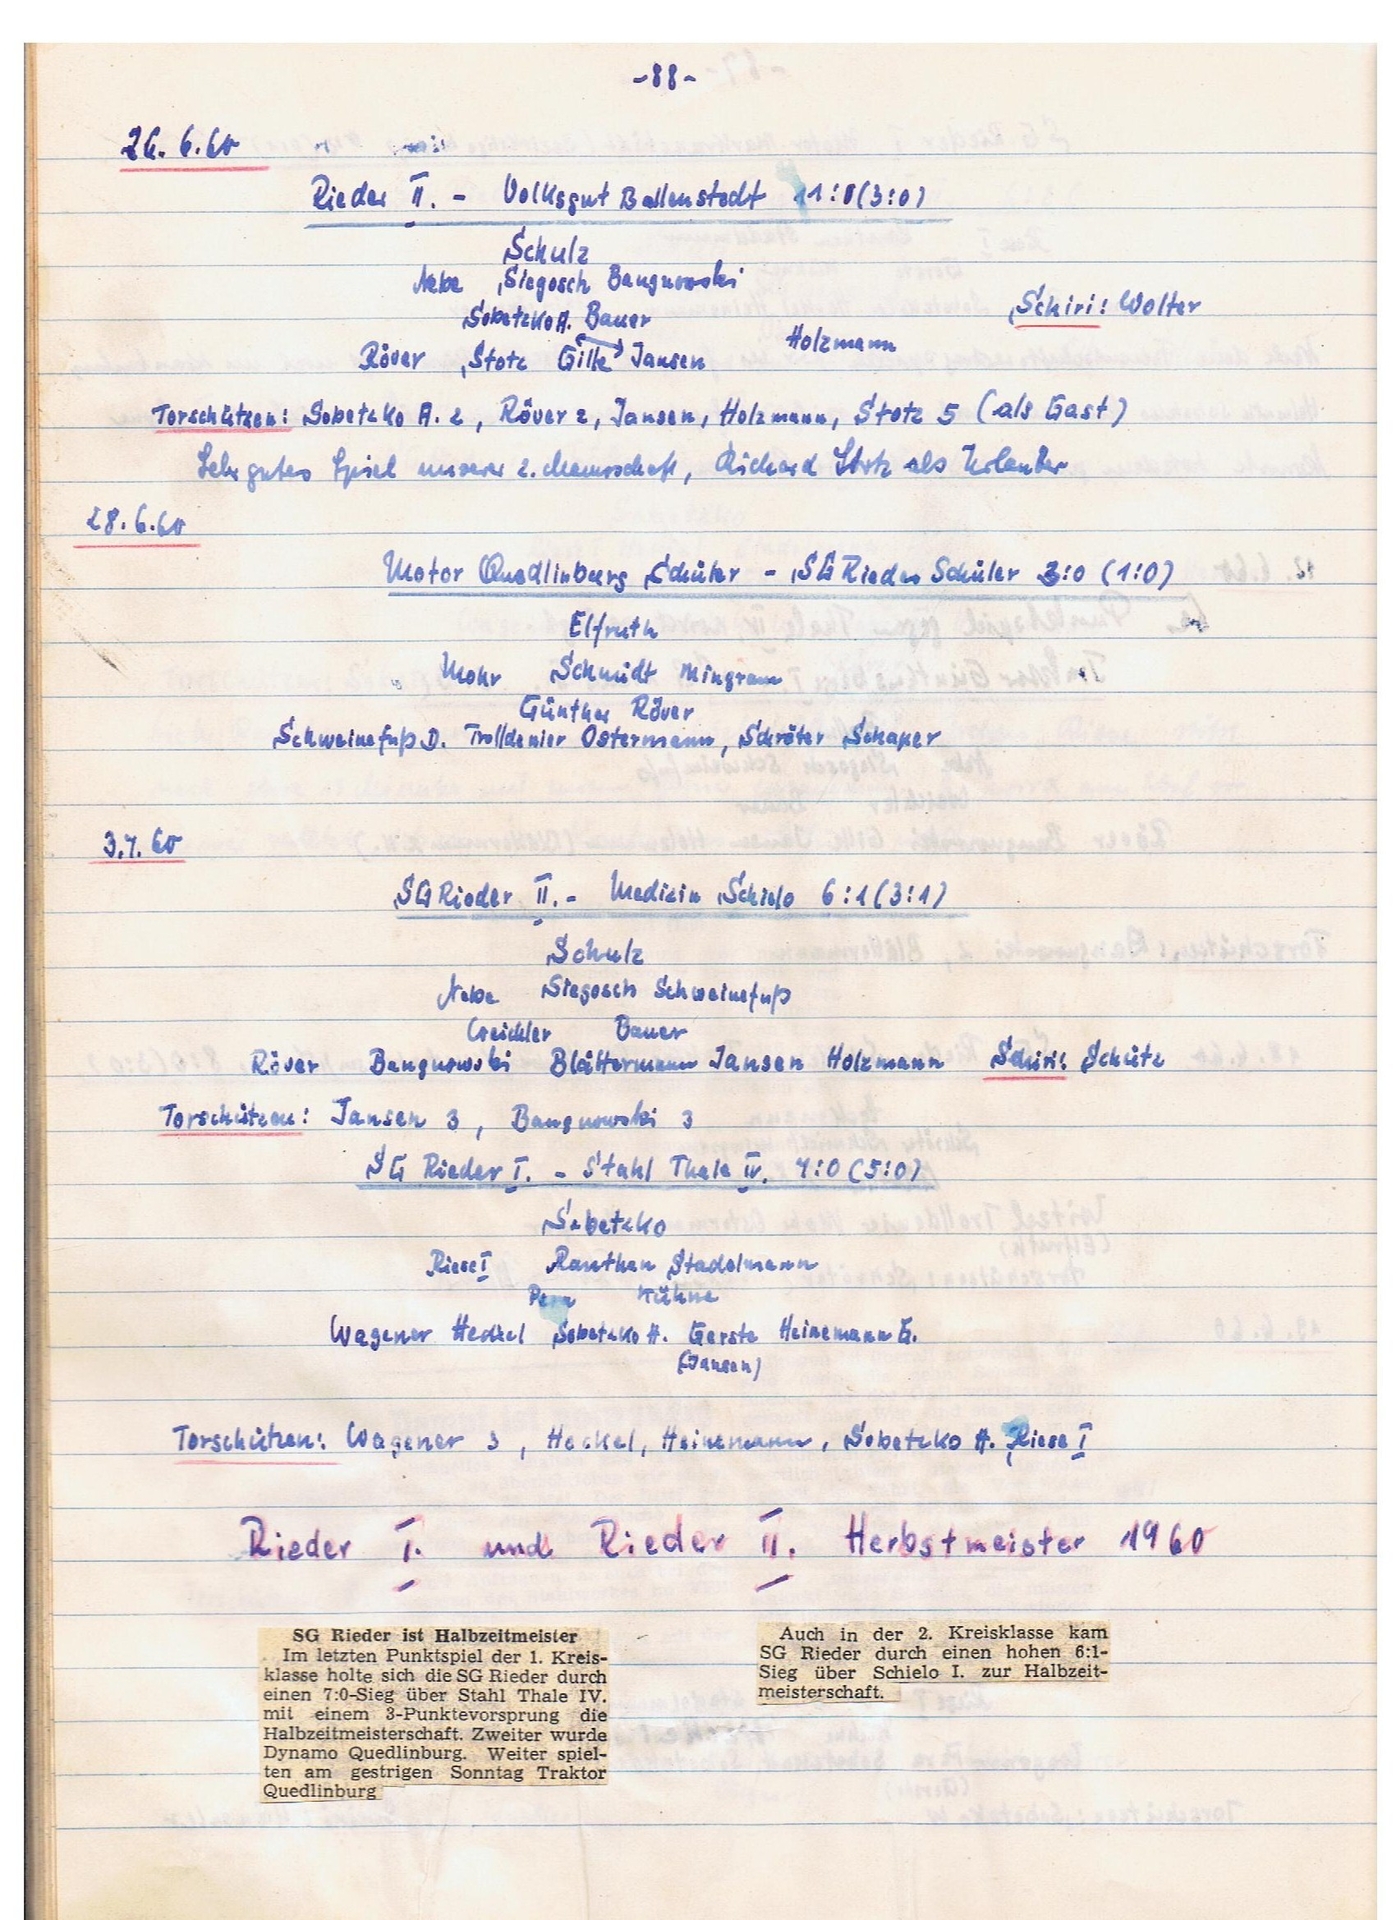 -88-
26.6.60
Rieder II. - Volksgut Ballenstedt 11:0(3:0)
Schulz
Nebe Siegosch Bangnowski
Sobetzko A. Bauer Schiri: Wolter
Röver Stotz Gille Jansen Holzmann
Torschützen: Sobetzko A. 2, Röver 2, Jansen, Holzmann, Stotz 5 (als Gast)
Sehr gutes Spiel unserer 2. Mannschaft, Richard Stotz als Urlauber
28.6.60
Motor Quedlinburg Schüler - SG Rieder Schüler 3:0 (1:0)
Elfruth
Mohr Schmidt Mingram
Günther Röver
Schweinefuß D. Trolldenier Ostermann, Schröter Schaper
3.7.60
SG Rieder II. - Medizin Schielo 6:1(3:1)
Schulz
Nebe Siegosch Schweinefuß
Weichler Bauer
Röver Bangnowski Blättermann Jansen Holzmann Schiri: Schütz
Torschützen: Jansen 3, Bangnowski 3
SG Rieder I. - Stahl Thale IV. 7:0 (5:0)
Sobetzko
Riese I Ranthen Stadelmann
Pera Kühne
Wagener Heckel Sobetzko A. Gerste Heinemann G.
(Jansen)
Torschützen: Wagener 3, Heckel, Heinemann, Sobetzko A. Riese I
Rieder I. und Rieder II. Herbstmeister 1960
SG Rieder ist Halbzeitmeister
Im letzten Punktspiel der 1. Kreis-
klasse holte sich die SG Rieder durch
einen 7:0-Sieg über Stahl Thale IV.
mit einem 3-Punktevorsprung die
Halbzeitmeisterschaft. Zweiter wurde
Dynamo Quedlinburg. Weiter spiel-
ten am gestrigen Sonntag Traktor
Quedlinburg
Auch in der 2. Kreisklasse kam
SG Rieder durch einen hohen 6:1-
Sieg über Schielo I. zur Halbzeit-
meisterschaft.